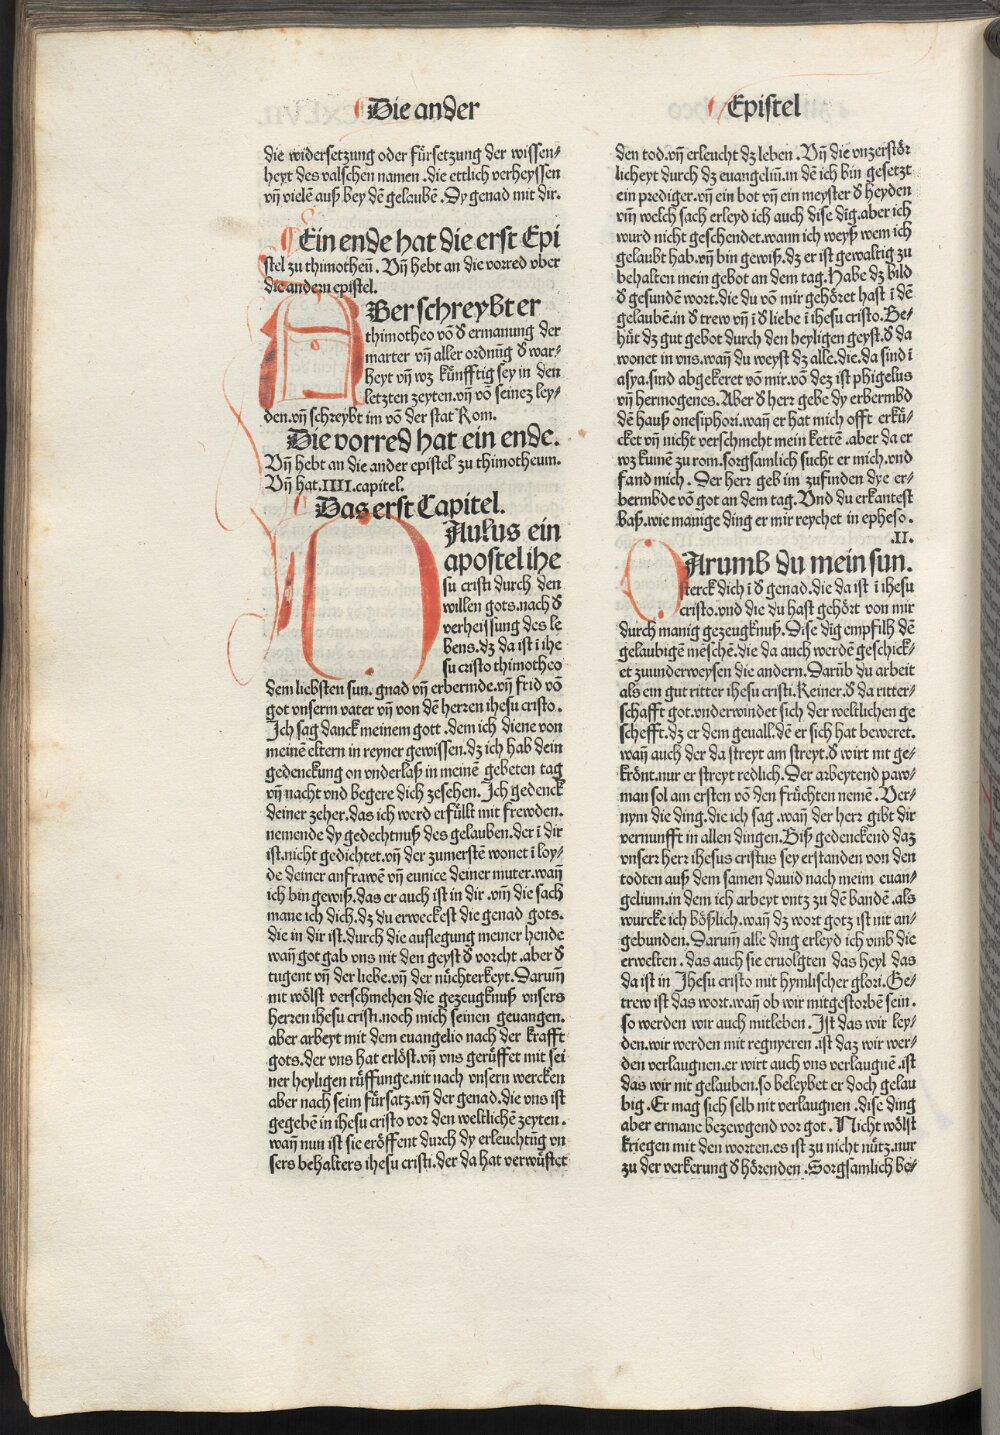 Die ander
Epistel
die widersetzung oder fürsetzung der wissen⸗
heyt des valschen namen .die ettlich verheyssen
vn̄ vielē auß bey dē gelaubē .Dy genad mit dir.
Ein ende hat die erst Epi
stel zu thimotheū . Vn̄ hebt an die vorred vber
die andern epistel.
ABer schreybt er
thimotheo vō d̓ ermanung der
marter vn̄ aller ordnūg d̓ war⸗
heyt vn̄ wz kümfftig sey in den
letzten zeyten.vn̄ vō seinez ley⸗
den.vn̄ schreybt im vō der stat Rom.
Die vorred hat ein ende.
Vn̄ hebt an die ander epistel zu thimotheum.
Vn̄ hat.IIII.capitel.
Das erst Capitel.
PAulus ein
apostel ihe
su cristi durch den
willen gots.nach d̓
verheissung des le
bens.dz da ist ī ihe
su cristo thimotheo
dem liebsten sun. gnad vn̄ erbermde.vn̄ frid vō
got vnserm vater vn̄ von dē herren ihesu cristo.
Ich sag danck meinem gott .dem ich diene von
meinē eltern in reyner gewissen.dz ich hab dein
gedenckung on vnderlaß in meinē gebeten tag
vn̄ nacht vnd begere dich zesehen. Ich gedenck
deiner zeher.das ich werd erfüllt mit frewden.
nemende dy gedechtnuß des gelauben.der ī dir
ist.nicht gedichtet.vn̄ der zumerstē wonet ī loy⸗
de deiner anfrawē vn̄ eunice deiner muter.wan̄
ich bin gewiß.das er auch ist in dir .vm̄ die sach
mane ich dich.dz du erweckest die genad gots.
die in dir ist.durch die auflegung meiner hende
wan̄ got gab vns nit den geyst d̓ vorcht .aber d̓
tugent vn̄ der liebe.vn̄ der nüchterkeyt.Darum̄
nit wölst verschmehen die gezeugknuß vnsers
herren ihesu cristi.noch mich seinen geuangen.
aber arbeyt mit dem euangelio nach der krafft
gots.der vns hat erlöst.vn̄ vns gerüffet mit sei
ner heyligen rüffunge.nit nach vnsern wercken
aber nach seim fürsatz.vn̄ der genad.die vns ist
gegebē in ihesu cristo vor den weltlichē zeyten.
wan̄ nun ist sie eröffent durch dy erleuchtūg vn
sers behalters ihesu cristi.der da hat verwüstet
den tod.vn̄ erleucht dz leben .Vn̄ die vnzerstör
licheyt durch dz euangeliū.in dē ich bin gesetzt
ein prediger.vn̄ ein bot vn̄ ein meyster d̓ heyden
vm̄ welch sach erleyd ich auch dise dīg.aber ich
wurd nicht geschendet.wann ich weyß wem ich
gelaubt hab.vn̄ bin gewiß.dz er ist gewaltig zu
behalten mein gebot an dem tag. Habe dz bild
d̓ gesundē wort.die du vō mir gehöret hast ī dē
gelaubē.in d̓ trew vn̄ ī d̓ liebe ī ihesu cristo.Be⸗
hüt dz gut gebot durch den heyligen geyst.d̓ da
wonet in vns.wan̄ du weyst dz alle.die.da sind ī
asya.sind abgekeret vō mir.vō dez ist phigelus
vn̄ hermogenes. Aber d̓ herr gebe dy erbermbd
dē hauß onesiphori.wan̄ er hat mich offt erkü⸗
cket vn̄ nicht verschmeht mein kettē .aber da er
wz kumē zu rom.sorgsamlich sucht er mich.vnd
fand mich . Der herr geb im zufinden dye er⸗
bermbde vō got an dem tag. Vnd du erkantest
baß.wie manige ding er mir reychet in epheso.
.II.
DArumb du mein sun.
sterck dich ī d̓ genad.die da ist ī ihesu
cristo.vnd die du hast gehört von mir
durch manig gezeugknuß. Dise dīg empfilh dē
gelaubigē mēschē.die da auch werdē geschick⸗
et zuunderweysen die andern. Darūb du arbeit
als ein gut ritter ihesu cristi. Keiner.d̓ da ritter⸗
schafft got.vnderwindet sich der weltlichen ge
schefft.dz er dem geuall.dē er sich hat beweret.
wan̄ auch der da streyt am streyt.d̓ wirt nit ge⸗
krönt.nur er streyt redlich. Der arbeytend paw⸗
man sol am ersten vō den früchten nemē . Ver⸗
nym die ding.die ich sag .wan̄ der herr gibt dir
vernunfft in allen dingen. Biß gedenckend daz
vnserr herr ihesus cristus sey erstanden von den
todten auß dem samen dauid nach meim euan⸗
gelium.in dem ich arbeyt vntz zu dē bandē .als
wurcke ich bößlich.wan̄ dz wort gotz ist nit an⸗
gebunden. Darum̄ alle ding erleyd ich vmb die
erwelten . das auch sie eruolgten das heyl das
da ist in Jhesu cristo mit hymlischer glori. Ge⸗
trew ist das wort.wan̄ ob wir mitgestorbē sein.
so werden wir auch mitleben. Ist das wir ley⸗
den.wir werden mit regnyeren .ist daz wir wer⸗
den verlaugnen.er wirt auch vns verlaugnē .ist
das wir nit gelauben.so beleybet er doch gelau
big. Er mag sich selb nit verlaugnen .dise ding
aber ermane bezewgend vor got. Nicht wölst
kriegen mit den worten.es ist zu nicht nütz.nur
zu der verkerung d̓ hörenden .Sorgsamlich be⸗